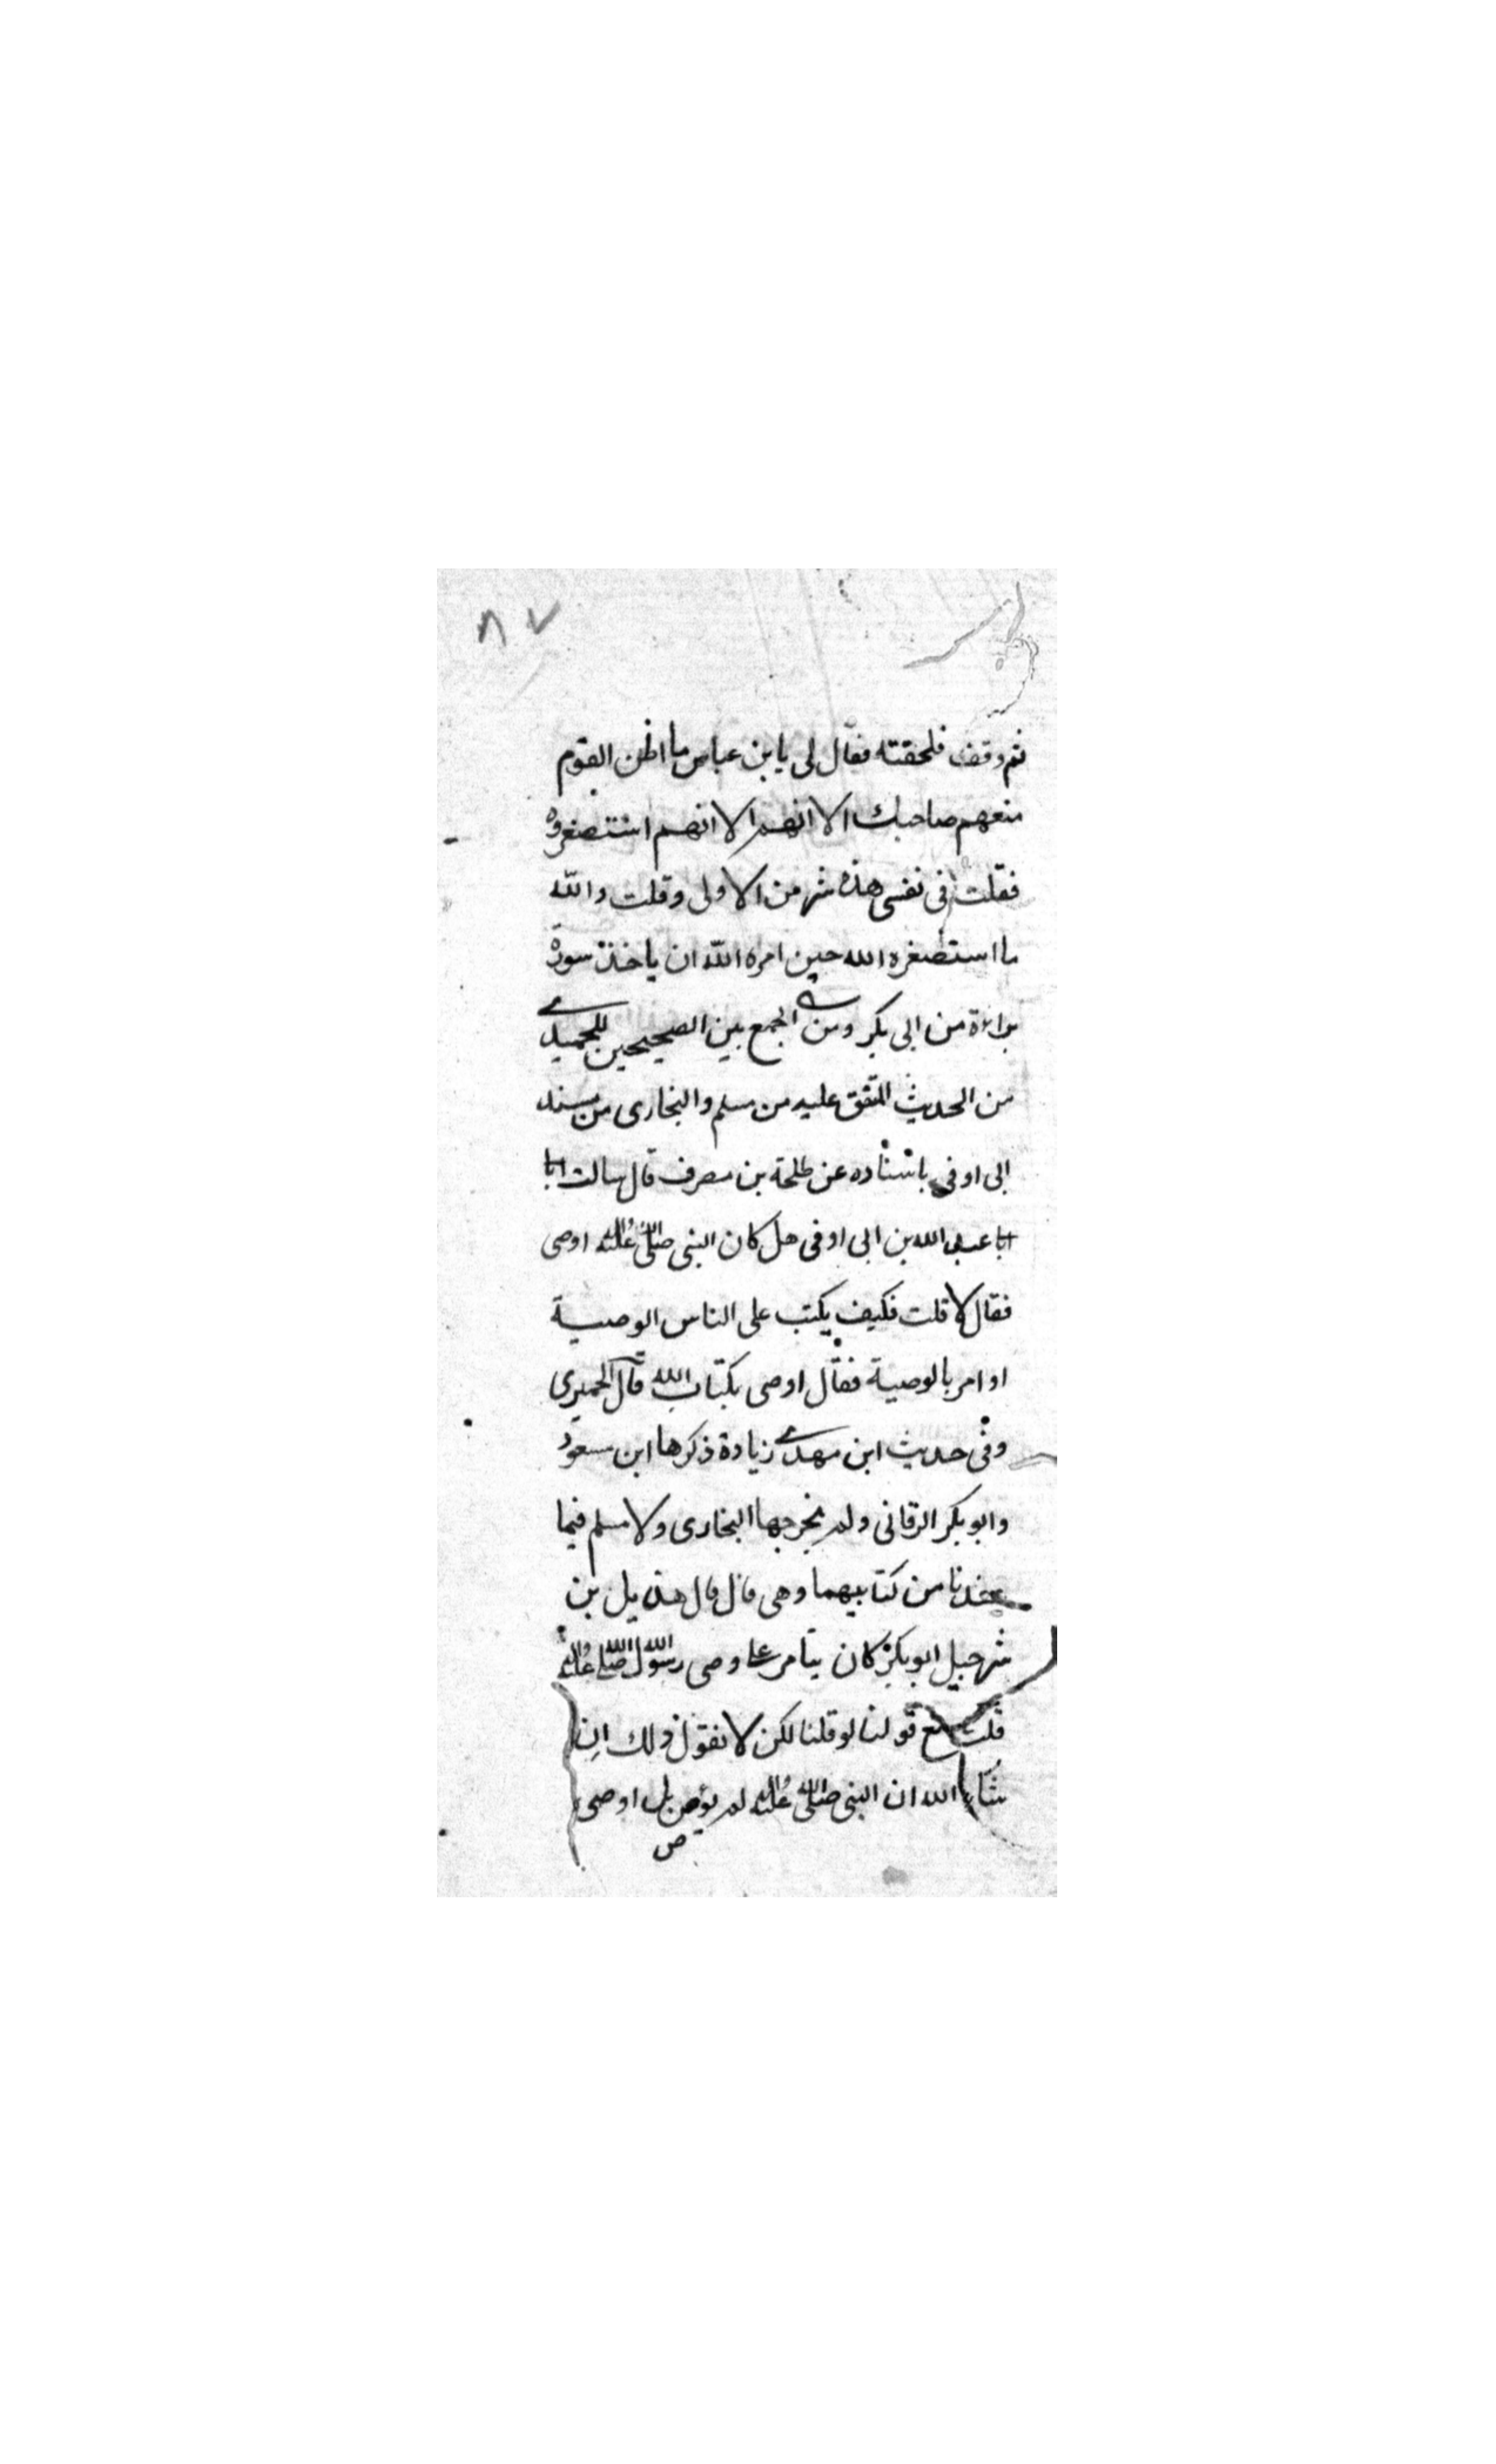 ٨٧
ثم وقف فلحقته فقال لى يا بن عباس ما اظن القوم
منعهم صاحبك الا انهم الا انهم استصغروه
فقلت فى نفسى هذه شر من الاولى وقلت والله
ما استصغره الله حين امره الله ان ياخذ سورة
براءة من ابى بكر ومن الجمع بين الصحيحين للحميدى
من الحديث المتفق عليه من مسلم والبخارى من مسند
ابى اوفى باسناده عن طلحة بن مصرف قال سالت ابا
ابا عبد الله بن ابى اوفى هل كان النبى صلى الله عليه اوصى
فقال لا قلت فكيف يكتب على الناس الوصية
او امر بالوصية فقال اوصى بكتاب الله قال الحميرى
وفى حديث ابن مهدى زيادة ذكرها ابن مسعود
وابو بكر الرقانى ولم يخرجها البخارى ولا مسلم فيما
عندنا من كتابيهما وهى قال قال هذيل بن
شرحبيل ابو بكر كان يتامر على وصى رسول الله صلى الله عليه
قلت مع قولنا لو قلنا لكن لا نقول ذلك ان
شاء الله ان النبى صلى الله عليه لم يوص بل اوصى
ص